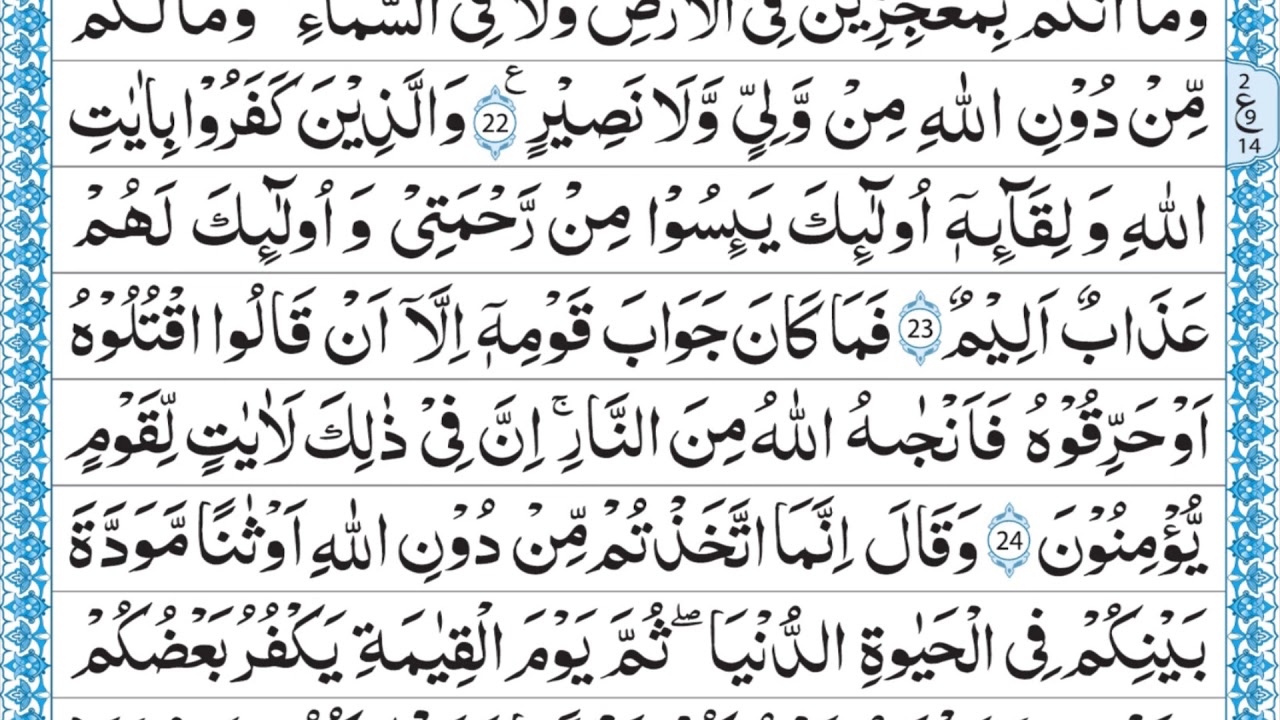 وَمَاۤ اَنْتُمْ بِمُعْجِزِيْنَ فِى الْاَرْضِ وَلَا فِى السَّمَآءِ وَمَا لَكُمْ
مِّنْ دُوْنِ اللّٰهِ مِنْ وَّلِيٍّ وَّلَا نَصِيْرٍ ع 22 وَالَّذِيْنَ كَفَرُوْا بِاٰيٰتِ
2
ع
9
14
اللّٰهِ وَ لِقَآئِهٖۤ اُولٰٓئِكَ يَئِسُوْا مِنْ رَّحْمَتِىْ وَ اُولٰٓئِكَ لَهُمْ
عَذَابٌ اَلِيْمٌ 23 فَمَا كَانَ جَوَابَ قَوْمِهٖۤ اِلَّاۤ اَنْ قَالُوا اقْتُلُوْهُ
اَوْ حَرِّقُوْهُ فَاَنْجٰىهُ اللّٰهُ مِنَ النَّارِ ۚ اِنَّ فِىْ ذٰلِكَ لَاٰيٰتٍ لِّقَوْمٍ
يُّؤْمِنُوْنَ 24 وَقَالَ اِنَّمَا اتَّخَذْتُمْ مِّنْ دُوْنِ اللّٰهِ اَوْثٰنًا مَّوَدَّةَ
بَيْنِكُمْ فِى الْحَيٰوةِ الدُّنْيَا ۖ ثُمَّ يَوْمَ الْقِيٰمَةِ يَكْفُرُ بَعْضُكُمْ